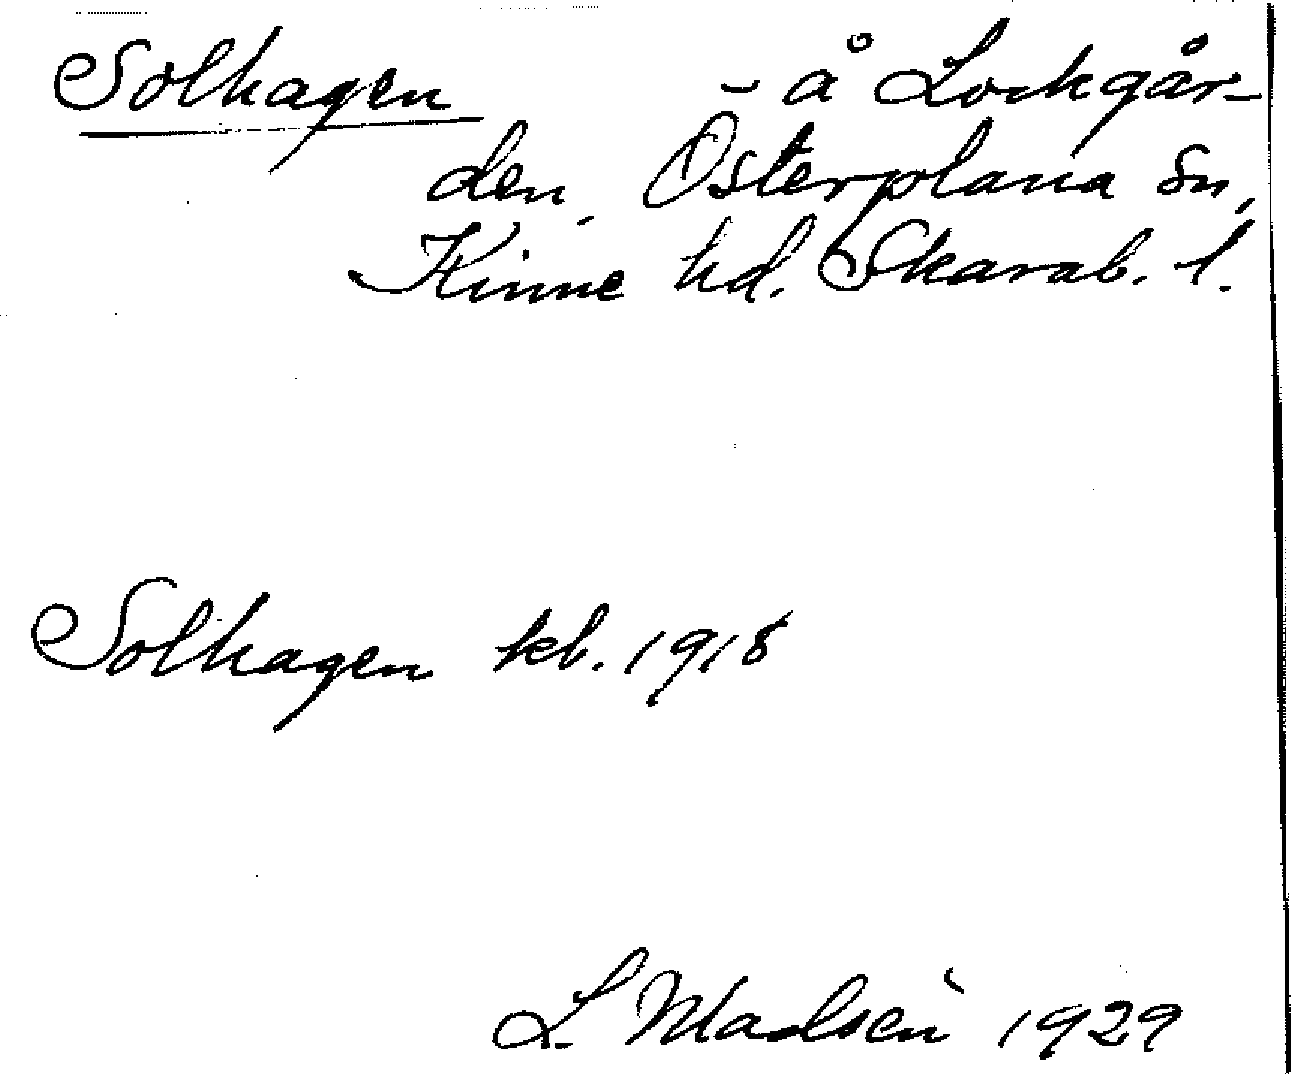 Solhagen - å Lockgår-
den, Österplana sn,
Kinne hd. Skarab. l.
Solhagen kb. 1918
L. Madsén 1929